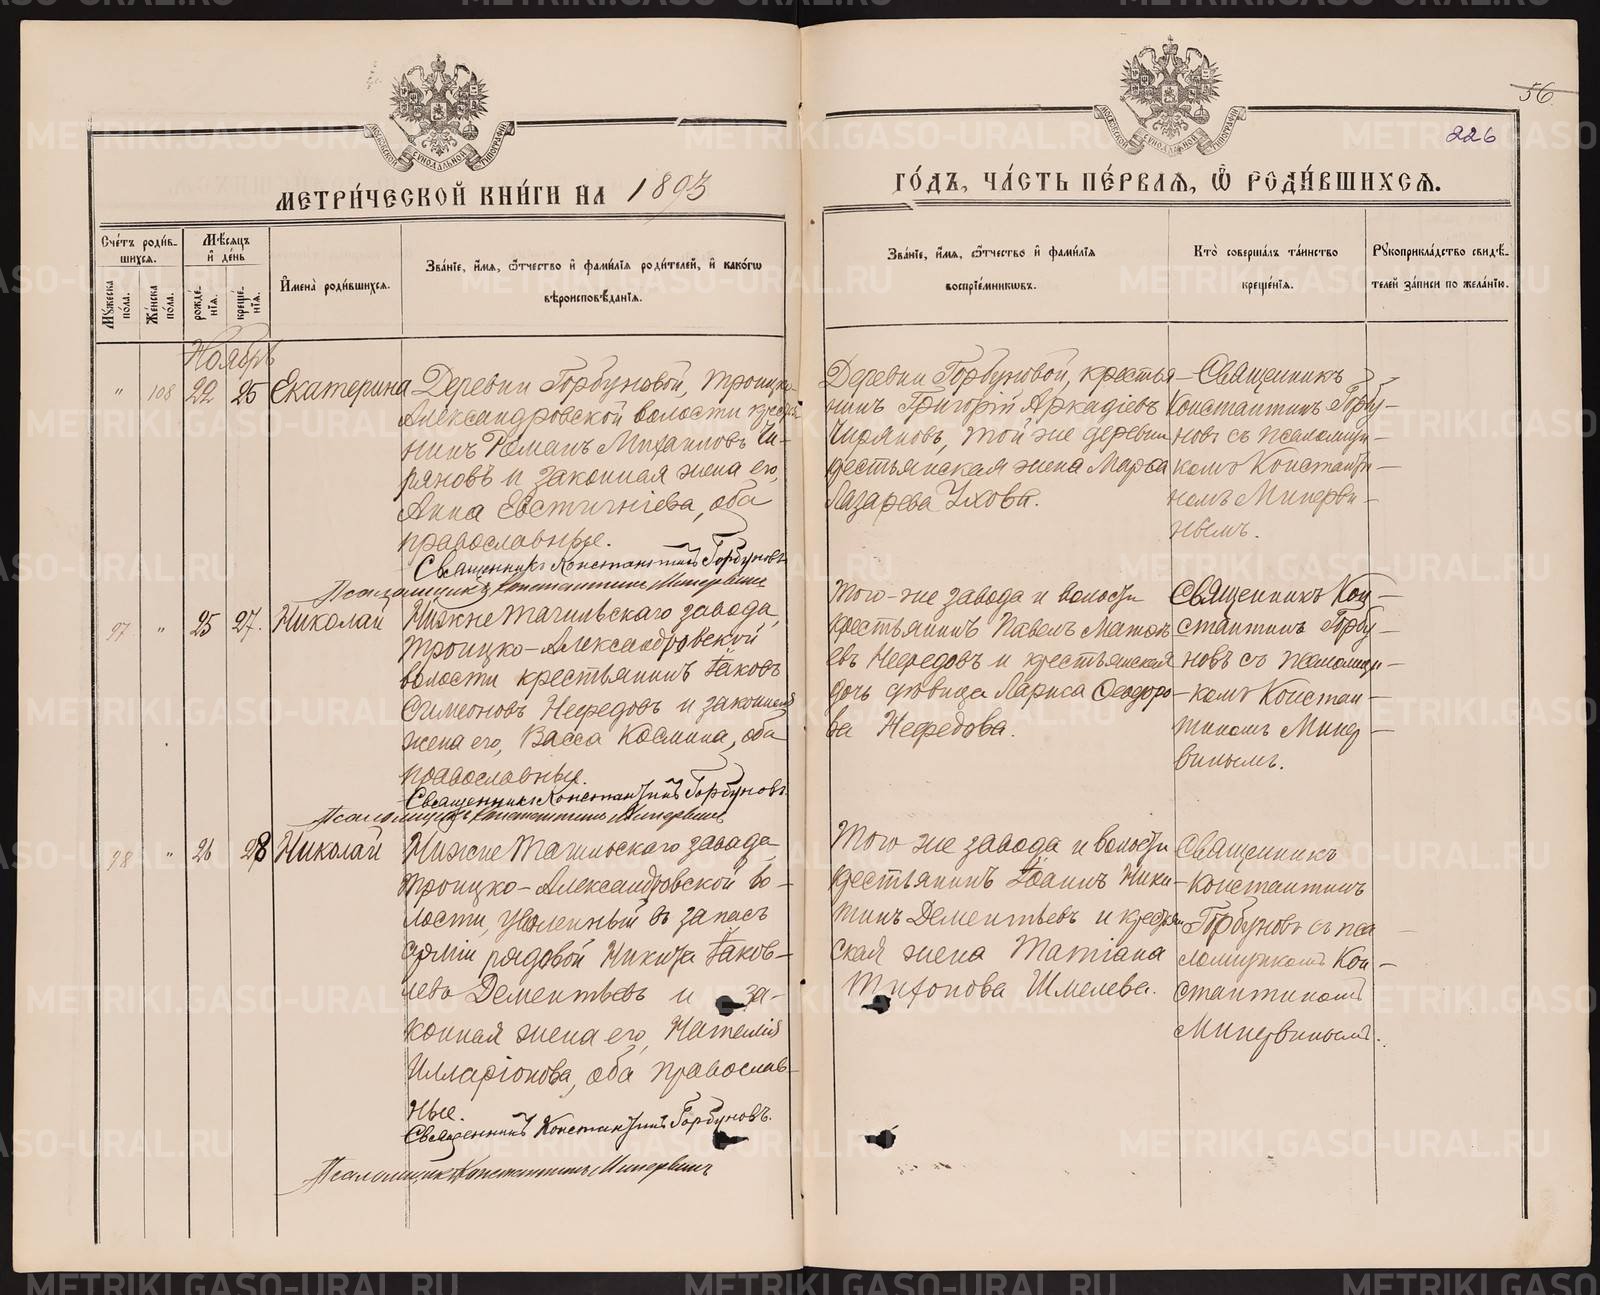 56
226
МЕТРИ́ЧЕСКОЙ КНИ́ГИ НА 1893
ГО́ДЪ, ЧА́СТЬ ПЕ́РВАЯ, Ѽ РОДИ́ВШИХСЯ.
Сче́тъ роди́в-
шихся.
Мꙋ́жеска по́ла.
Же́нска по́ла.
Мѣ́сяцъ и҆ де́нь
рожде́нїя.
креще́нїя.
И҆мена̀ роди́вшихся.
Зва́нїе, и҆́мя, ѻ҆́тчество и҆ фами́лїя роди́телей, и҆ како́гѡ
вѣроисповѣ́данїя.
Зва́нїе, и҆́мя, ѻ҆́тчество и҆ фами́лїя
воспрїе́мникѡвъ.
Кто̀ соверша́лъ та́инство
креще́нїя.
Рꙋкоприкла́дство свидѣ́-
телей за́писи по жела́нїю.
Ноябрь
" 108 22 25 Екатерина
Деревни Горбуновой, Троицко-
Александровской волости кресть
нинъ Романъ Михаиловъ Чи-
ряновъ и законная жена его,
Анна Евстигніева, оба
православные.
Священникъ Константинъ Горбуновъ
Псаломщикъ Константинъ Минервинъ
Деревни Горбуновой, крестья-
нинъ Григорій Аркадіевъ
Чиряновъ, той же деревни
крестьянская жена Марѳа
Лазарева Ухова.
Священникъ
Константинъ Горбу-
новъ съ псаломщи-
комъ Константи-
номъ Минерви-
нымъ.
97 " 25 27. Николай
Нижне Тагильскаго завода,
Троицко-Александровской
волости крестьянинъ Іаковъ
Симеоновъ Нефедовъ и законная
жена его, Васса Космина, оба
православные.
Священникъ Константинъ Горбуновъ
Псаломщикъ Константинъ Минервинъ
Того-же завода и волости
крестьянинъ Павелъ Матѳ
евъ Нефедовъ и крестьянская
дочь дѣвица Лариса Ѳеодоро-
ва Нефедова.
Священникъ Кон-
стантинъ Горбу-
новъ съ псаломщи-
комъ Констан-
тиномъ Минер-
винымъ.
98 " 26 28 Николай
Нижне Тагильскаго завода,
Троицко-Александровской во-
лости, уволенный въ запасъ
арміи рядовой Никита Іаков-
левъ Дементьевъ и за-
конная жена его, Наталія
Илларіонова, оба православ-
ные.
Священникъ Константинъ Горбуновъ.
Псаломщикъ Константинъ Минервинъ
Того же завода и волости
крестьянинъ Іоаннъ Ники-
тинъ Дементьевъ и крестьян
ская жена Татіана
Тихонова Шмелева.
Священникъ
Константинъ
Горбуновъ съ пса
ломщикомъ Кон-
стантиномъ
Минервинымъ.
METRIKI.GASO-URAL.RU